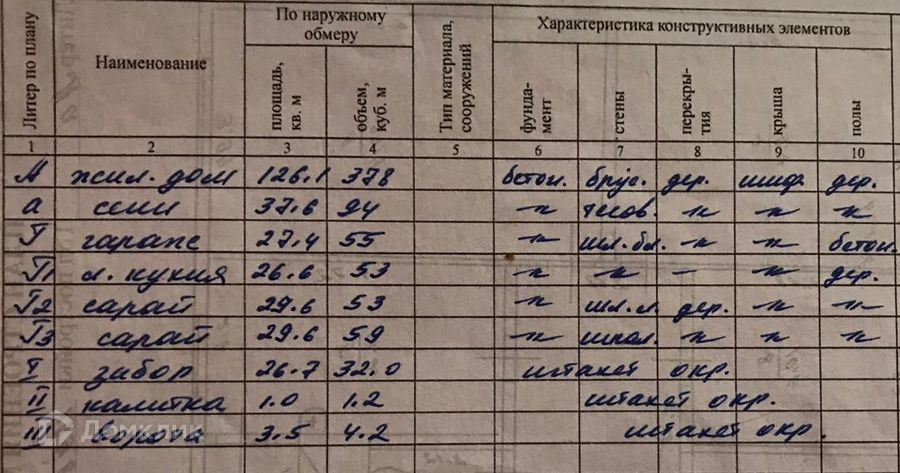 Литер по плану Наименование По наружному обмеру Тип материала, сооружений Характеристика конструктивных элементов
площадь, кв. м объем, куб. м фунда-мент стены перекры-тия крыша полы
1 2 3 4 5 6 7 8 9 10
А жил. дом 126.1 378 бетон. брус. дер. шиф. дер.
а сени 37.6 94 –"– тесов. –"– –"– –"–
Г гараж 27.4 55 –"– шл.бл. –"– –"– бетон.
Г1 л. кухня 26.6 53 –"– –"– – –"– дер.
Г2 сарай 29.6 53 –"– дер. –"– –"–
Г3 сарай 29.6 59 –"– шпал. –"– –"– –"–
I забор 26.7 32.0 штакет окр.
II калитка 1.0 1.2 штакет окр.
III ворота 3.5 4.2 штакет окр.
Домклик